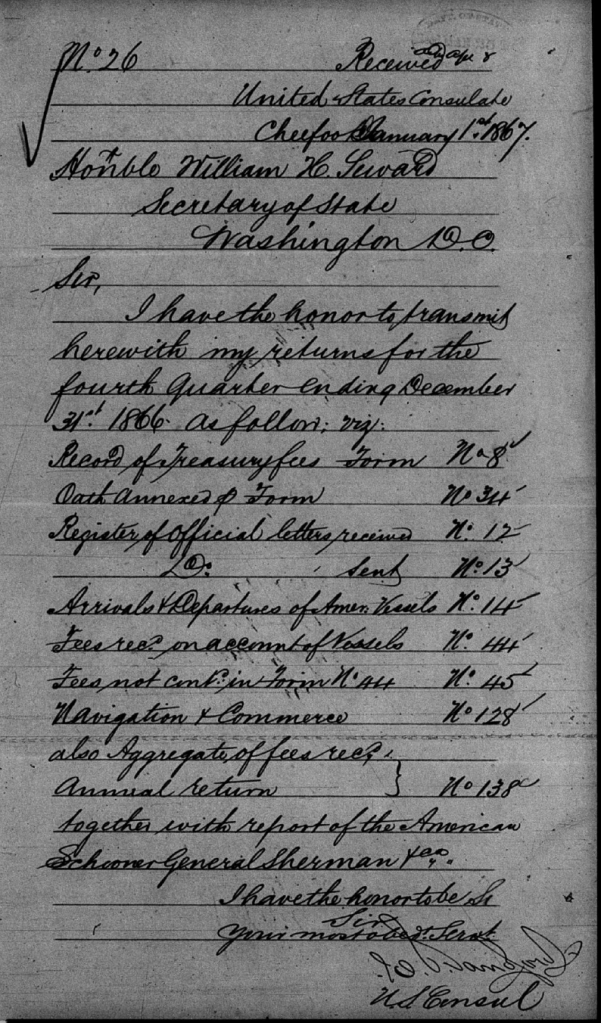 No. 26 Received
United States Consulate
Cheefoo January 1st 1867.
Honble William H. Seward
Secretary of State
Washington D.C.
Sir,
I have the honor to transmit
herewith my returns for the
fourth Quarter ending December
31st 1866. as follow; viz:
Record of Treasury fees Form No 8
Oath annexed Form No 34
Register of Official letters received No. 12
Do. Sent No. 13
Arrivals & Departures of Amer. Vessels No. 14
Fees recd. on account of Vessels No. 44
Fees not contd. in Form No 44 No. 45
Navigation & Commerce No 128
also Aggregate, of fees recd.
Annual return } No 138
together with report of the American
Schooner General Sherman &c
I have the honor to be
Sir
Your most obedt. Servt.
E. C. Sandford
U S Consul